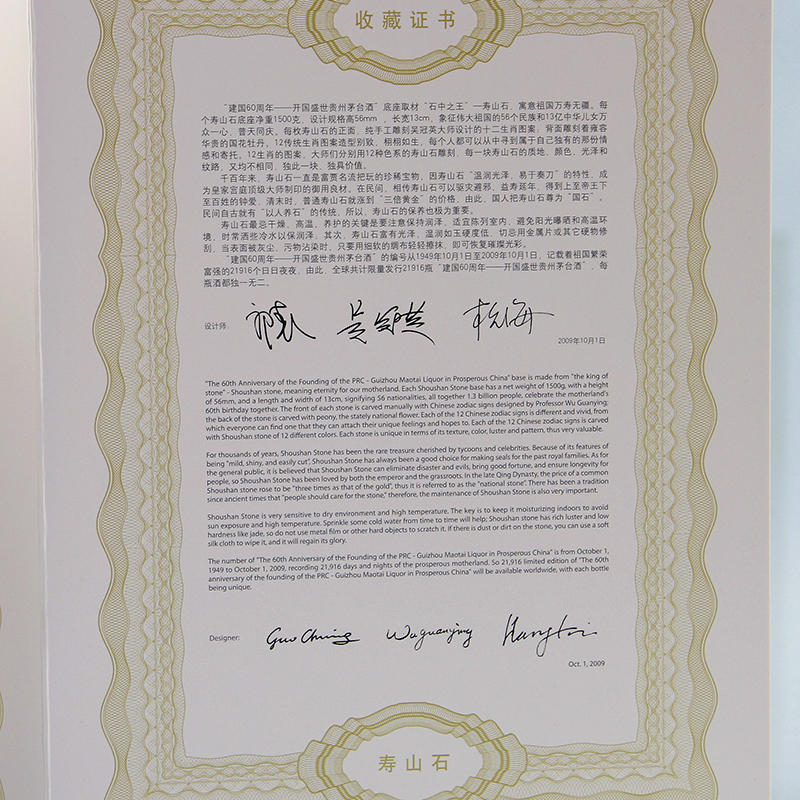 收藏证书
“建国60周年——开国盛世贵州茅台酒”底座取材“石中之王”—寿山石，寓意祖国万寿无疆。每
个寿山石底座净重1500克，设计规格高56mm，长宽13cm，象征伟大祖国的56个民族和13亿中华儿女万
众一心，普天同庆。每枚寿山石的正面，纯手工雕刻吴冠英大师设计的十二生肖图案；背面雕刻着雍容
华贵的国花牡丹。12传统生肖图案造型别致、栩栩如生，每个人都可以从中寻到属于自己独有的那份情
感和寄托。12生肖的图案，大师们分别用12种色系的寿山石雕刻，每一块寿山石的质地、颜色、光泽和
纹路，又均不相同，独此一块、独具价值。
千百年来，寿山石一直是富贾名流把玩的珍稀宝物，因寿山石“温润光泽，易于奏刀”的特性，成
为皇家宫庭顶级大师制印的御用良材。在民间，相传寿山石可以驱灾避邪、益寿延年，得到上至帝王下
至百姓的钟爱，清末时，普通寿山石就涨到“三倍黄金”的价格，由此，国人把寿山石尊为“国石”。
民间自古就有“以人养石”的传统，所以，寿山石的保养也极为重要。
寿山石最忌干燥、高温，养护的关键是要注意保持润泽，适宜陈列室内，避免阳光曝晒和高温环
境，时常洒些冷水以保润泽；其次，寿山石富有光泽，温润如玉硬度低，切忌用金属片或其它硬物修
刮，当表面被灰尘、污物沾染时，只要用细软的绸布轻轻擦抹，即可恢复璀璨光彩。
“建国60周年——开国盛世贵州茅台酒”的编号从1949年10月1日至2009年10月1日，记载着祖国繁荣
富强的21916个日日夜夜，由此，全球共计限量发行21916瓶“建国60周年——开国盛世贵州茅台酒”，每
瓶酒都独一无二。
设计师:
2009年10月1日
"The 60th Anniversary of the Founding of the PRC - Guizhou Maotai Liquor in Prosperous China" base is made from "the king of
stone" - Shoushan stone, meaning eternity for our motherland. Each Shoushan Stone base has a net weight of 1500g, with a height
of 56mm, and a length and width of 13cm, signifying 56 nationalities, all together 1.3 billion people, celebrate the motherland's
60th birthday together. The front of each stone is carved manually with Chinese zodiac signs designed by Professor Wu Guanying;
the back of the stone is carved with peony, the stately national flower. Each of the 12 Chinese zodiac signs is different and vivid, from
which everyone can find one that they can attach their unique feelings and hopes to. Each of the 12 Chinese zodiac signs is carved
with Shoushan stone of 12 different colors. Each stone is unique in terms of its texture, color, luster and pattern, thus very valuable.
For thousands of years, Shoushan Stone has been the rare treasure cherished by tycoons and celebrities. Because of its features of
being "mild, shiny, and easily cut", Shoushan Stone has always been a good choice for making seals for the past royal families. As for
the general public, it is believed that Shoushan Stone can eliminate disaster and evils, bring good fortune, and ensure longevity for
people, so Shoushan Stone has been loved by both the emperor and the grassroots. In the late Qing Dynasty, the price of a common
Shoushan stone rose to be "three times as that of the gold", thus it is referred to as the "national stone". There has been a tradition
since ancient times that "people should care for the stone," therefore, the maintenance of Shoushan Stone is also very important.
Shoushan Stone is very sensitive to dry environment and high temperature. The key is to keep it moisturizing indoors to avoid
sun exposure and high temperature. Sprinkle some cold water from time to time will help; Shoushan stone has rich luster and low
hardness like jade, so do not use metal film or other hard objects to scratch it. If there is dust or dirt on the stone, you can use a soft
silk cloth to wipe it, and it will regain its glory.
The number of "The 60th Anniversary of the Founding of the PRC - Guizhou Maotai Liquor in Prosperous China" is from October 1,
1949 to October 1, 2009, recording 21,916 days and nights of the prosperous motherland. So 21,916 limited edition of "The 60th
anniversary of the founding of the PRC - Guizhou Maotai Liquor in Prosperous China" will be available worldwide, with each bottle
being unique.
Designer: Wuguanying
Oct. 1, 2009
寿山石